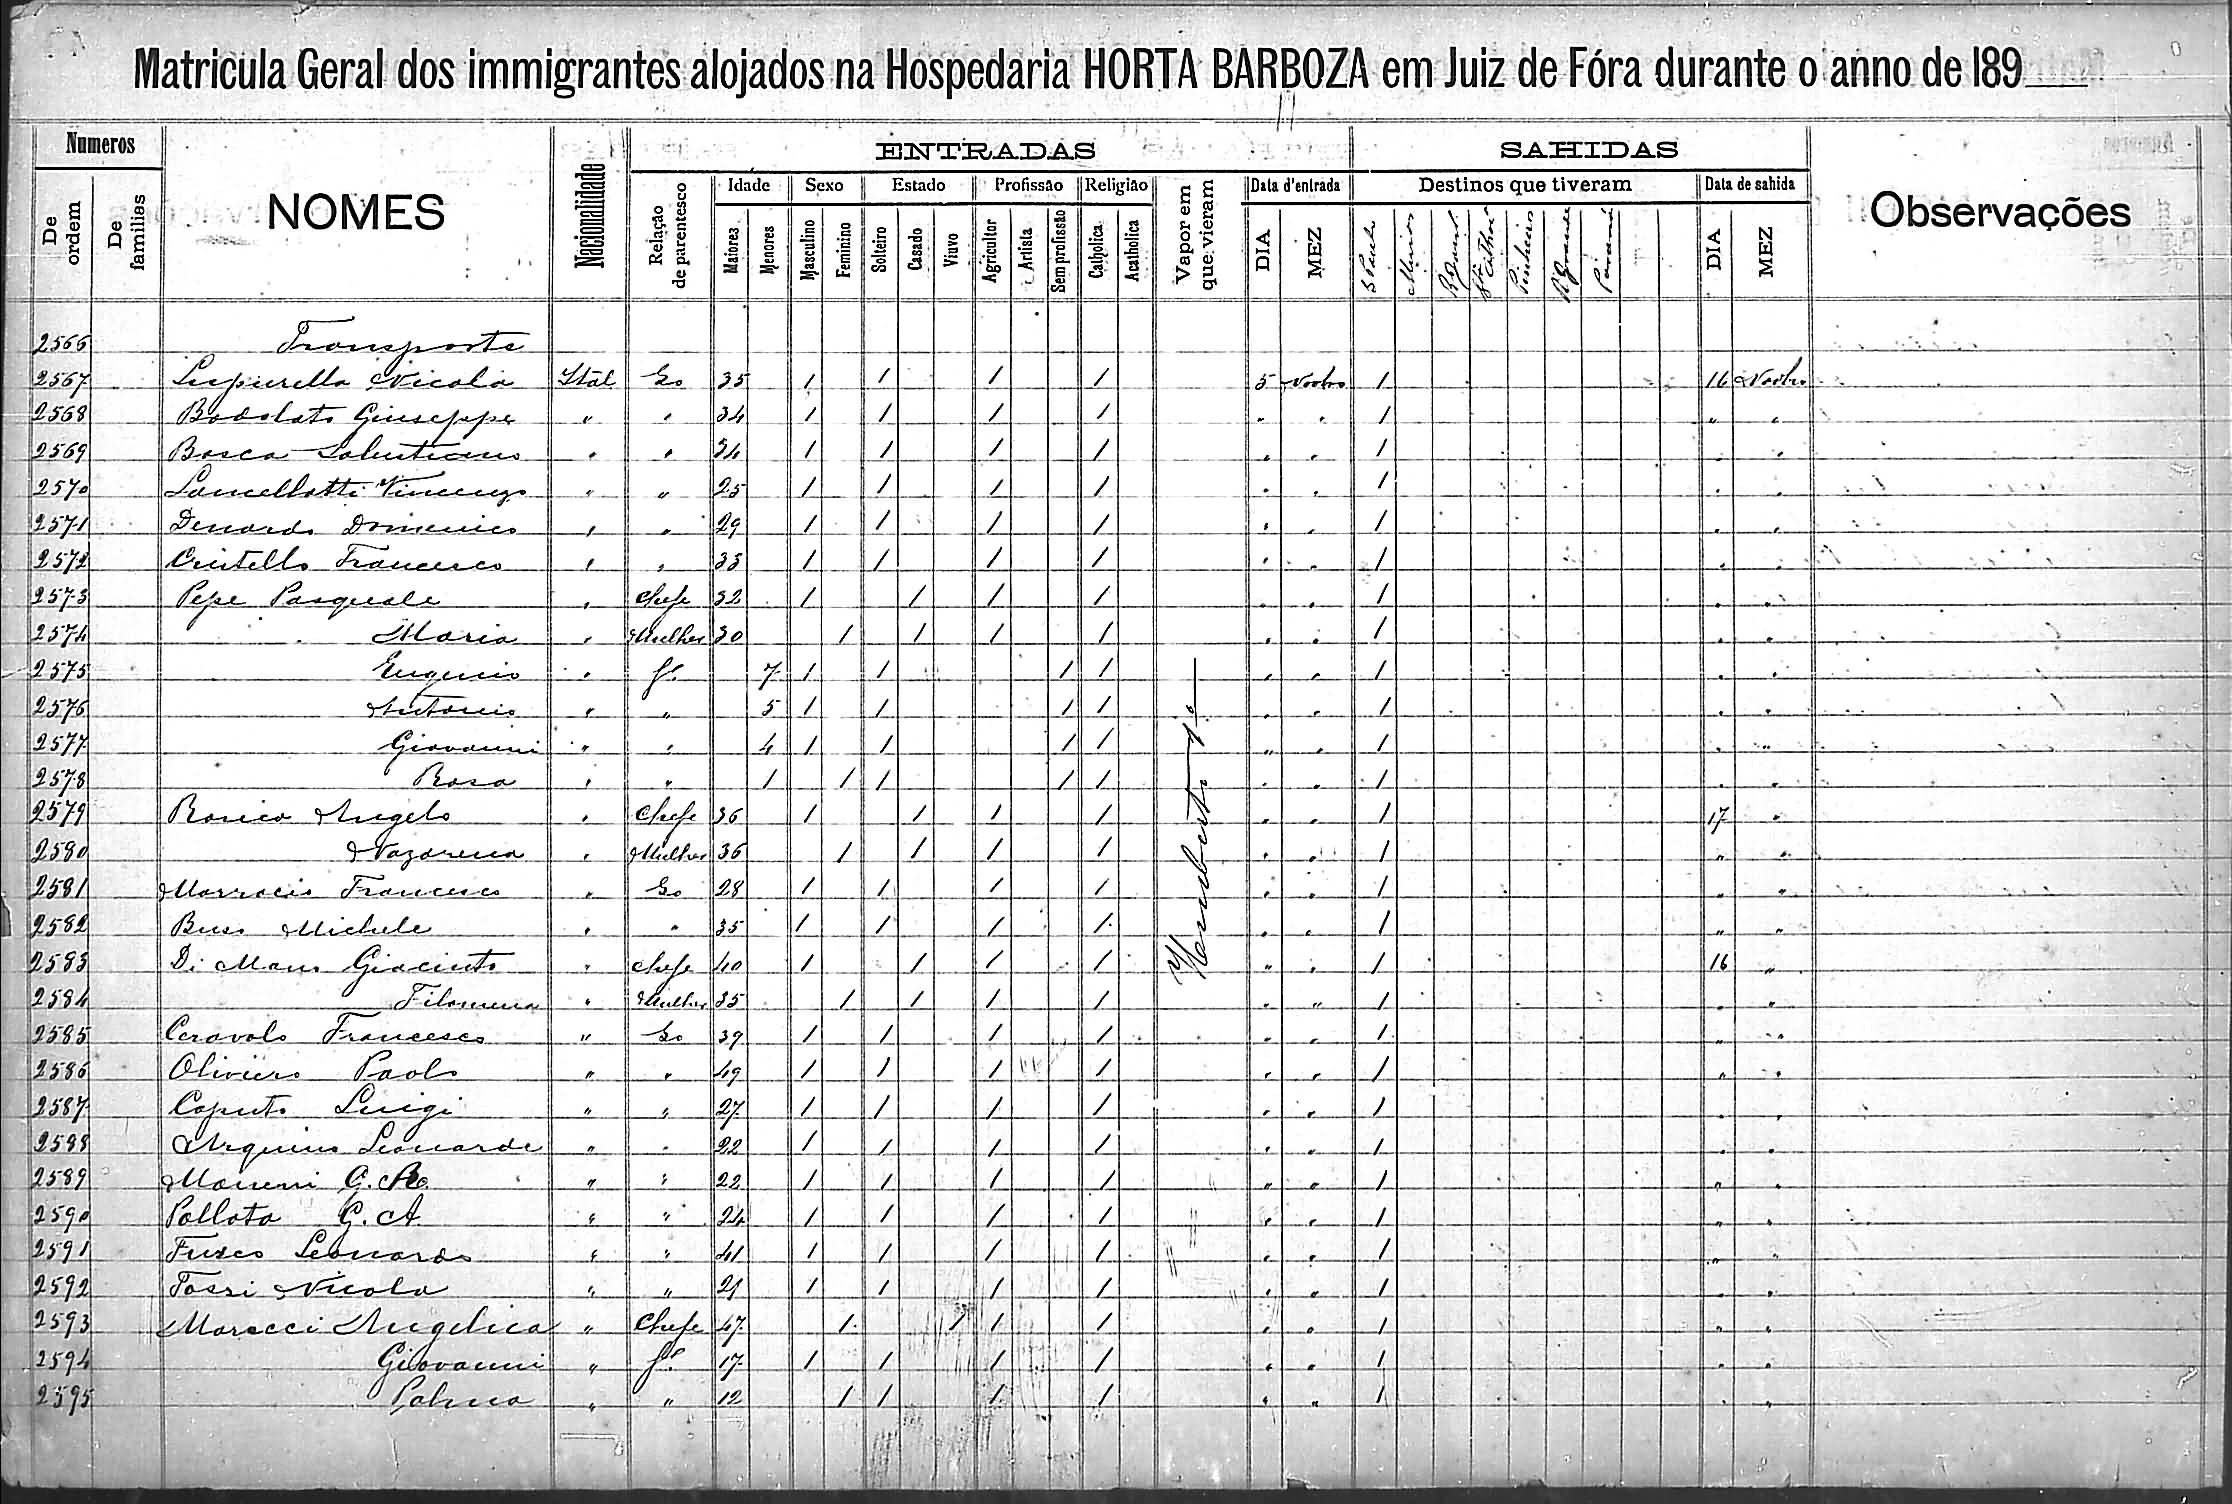 Matricula Geral dos immigrantes alojados na Hospedaria HORTA BARBOZA em Juiz de Fóra durante o anno de 189
Numeros
De ordem
De familias
NOMES
Nacionalidade
ENTRADAS
Relação de parentesco
Idade
Maiores
Menores
Sexo
Masculino
Feminino
Estado
Solteiro
Casado
Viuvo
Profissão
Agricultor
Artista
Sem profissão
Religião
Catholica
Acatholica
Vapor em que vieram
Data d'entrada
DIA
MEZ
SAHIDAS
Destinos que tiveram
S Paulo
Minas
Pinheiro
R Grande
Paraná
Data de sahida
DIA
MEZ
Observações
2566 Transporte
2567 Nicola Ital So 35 1 1 1 1 5 Novbro 1 16 Novbro
2568 Bodolato Giuseppe " " 34 1 1 1 1 " " 1 " "
2569 Bosca " " 34 1 1 1 1 " " 1 " "
2570 Lancellotti Vincenzo " " 25 1 1 1 1 " " 1 " "
2571 Denardo Domenico " " 29 1 1 1 1 " " 1 " "
2572 Cristello Francesco " " 33 1 1 1 1 " " 1 " "
2573 Pepe Pasquale " Chefe 32 1 1 1 1 " " 1 " "
2574 Maria " Mulher 30 1 1 1 1 " " 1 " "
2575 Eugenio " fº 7 1 1 1 1 " " 1 " "
2576 Antonio " " 5 1 1 1 1 " " 1 " "
2577 Giovanni " " 4 1 1 1 1 " " 1 " "
2578 Rosa " " 1 1 1 1 1 " " 1 " "
2579 Angelo " Chefe 36 1 1 1 1 " " 1 17 "
2580 Nazarena " Mulher 36 1 1 1 1 " " 1 " "
2581 Francesco " So 28 1 1 1 1 " " 1 " "
2582 Michele " " 35 1 1 1 1 " " 1 " "
2583 Di Giacinto " Chefe 40 1 1 1 1 " " 1 16 "
2584 Filomena " Mulher 35 1 1 1 1 " " 1 " "
2585 Ceravolo Francesco " So 39 1 1 1 1 " " 1 " "
2586 Oliviero Paolo " " 49 1 1 1 1 " " 1 " "
2587 Caputo Luigi " " 27 1 1 1 1 " " 1 " "
2588 Leonardo " " 22 1 1 1 1 " " 1 " "
2589 " " 22 1 1 1 1 " " 1 " "
2590 Pollota G. A. " " 24 1 1 1 1 " " 1 " "
2591 Fusco Leonardo " " 41 1 1 1 1 " " 1 " "
2592 Nicola " " 21 1 1 1 1 " " 1 " "
2593 Angelica " Chefe 47 1 1 1 1 " " 1 " "
2594 Giovanni " fº 17 1 1 1 1 " " 1 " "
2595 Palma " " 12 1 1 1 1 " " 1 "